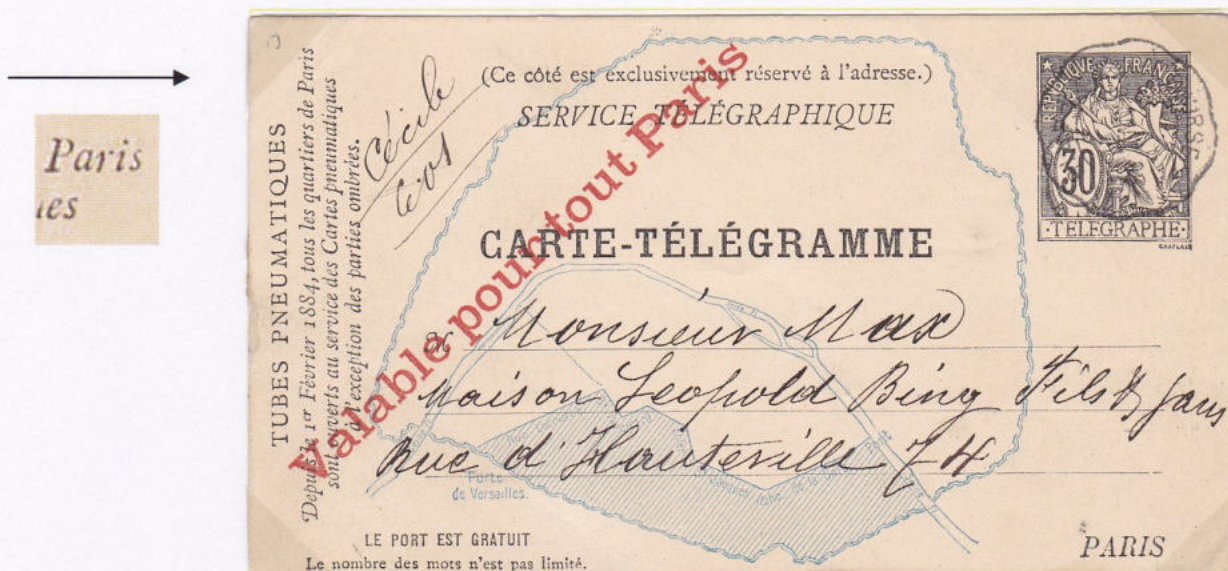 Paris
ues
TUBES PNEUMATIQUES
Depuis le 1er Février 1884, tous les quartiers de Paris
sont ouverts au service des Cartes pneumatiques
à l'exception des parties ombrées.
Cécile
(Ce côté est exclusivement réservé à l'adresse.)
SERVICE TÉLÉGRAPHIQUE
CARTE-TÉLÉGRAMME
Valable pour tout Paris
REPUBLIQUE FRANCAISE
30
TELEGRAPHE
CHAPLAIN
Monsieur Max
Maison Leopold Bing Fils &
Rue d'Hauteville 74
Porte
de Versailles.
LE PORT EST GRATUIT
Le nombre des mots n'est pas limité.
PARIS